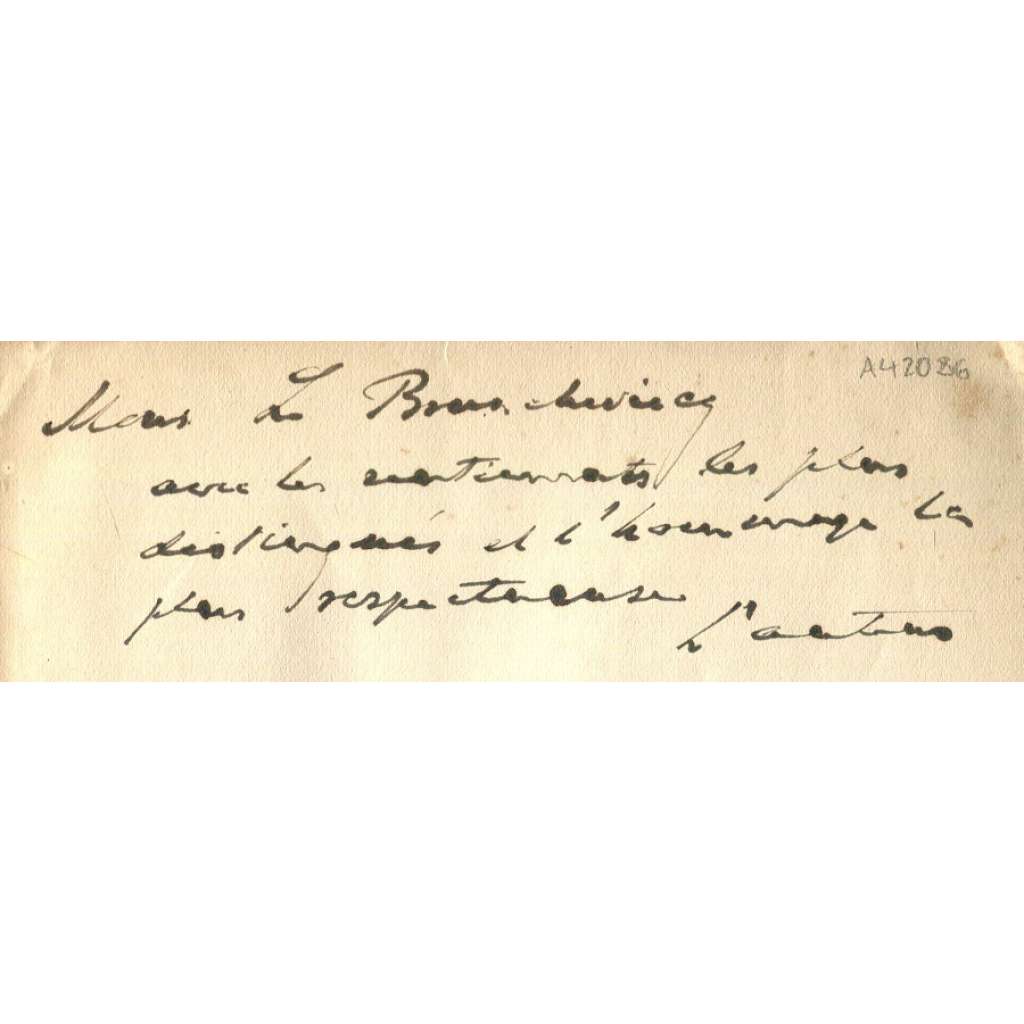 A42086
Mons L Brunschwicg
avec les sentiments les plus
distingués et l'hommage les
plus respectueuse
L'auteur